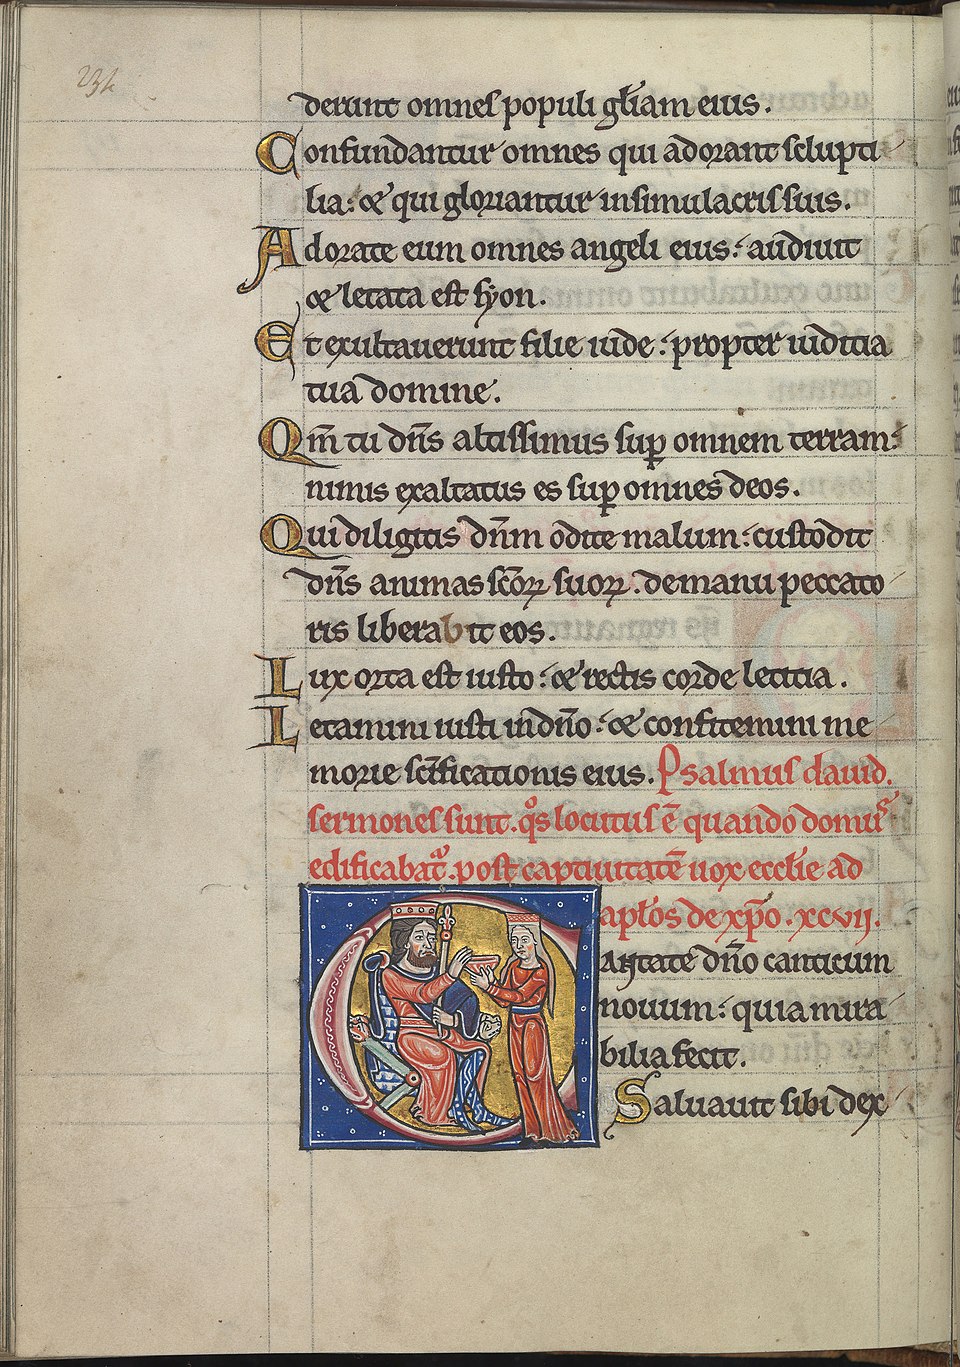 234
derunt omnes populi gl̄iam eius.
Confundantur omnes qui adorant sclupti
lia: & qui gloriantur in simulacris suis.
Adorate eum omnes angeli eius: audiuit
& letata est syon.
Et exultauerunt filie iude: propter iudicia
tua domine.
Qm̄ tu dn̄s altissimus sup̱ omnem terram:
nimis exaltatus es sup̱ omnes deos.
Qui diligitis dn̄m odite malum: custodit
dn̄s animas sc̄oꝝ suoꝝ. de manu peccato
ris liberabit eos.
Lux orta est iusto: & rectis corde leticia.
Letamini iusti in dn̄o: & confitemini me
morie sc̄ificationis eius. Psalmus dauid.
sermones sunt. qͦs locutus ē quando domus
edificabat᷑. post captiuitatē uox eccl̄ie ad
apl̄os de xp̄o. xcvii.
antate dn̄o canticum
nouum: quia mira
bilia fecit.
Saluauit sibi dex